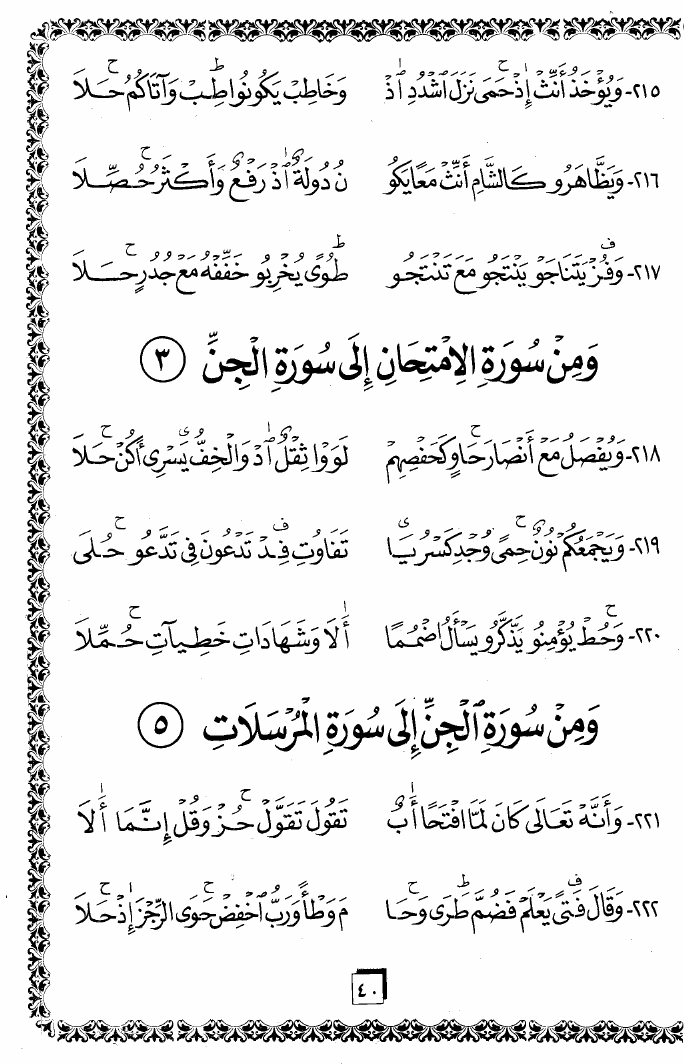 ٢١٥- وَيُؤْخَذُ أَنِّثْ إِذْ حَمَى نَزَلَ اشْدُدِ اذْ وَخَاطِبْ يَكُونُوا طِبْ وَآتَاكُمُ حَلَا
٢١٦- وَيَظَّاهَرُو كَالشَّامِ أَنِّثْ مَعًا يَكُو نُ دُولَةٌ اذْ رَفْعٌ وَأَكْثَرُ حُصِّلَا
٢١٧- وَفُزْ يَتَنَاجَوْ يَنْتَجُو مَعَ تَنْتَجُو طُوًى يُخْرِبُو خَفِّفْهُ مَعْ جُدُرٍ حَلَا
وَمِنْ سُورَةِ الِامْتِحَانِ إِلَى سُورَةِ الْجِنِّ ٣
٢١٨- وَيُفْصَلُ مَعْ أَنْصَارَ حَاوٍ كَحَفْصِهِمْ لَوَوْا ثِقْلٌ ادْ وَالْخِفُّ يَسْرِي أَكُنْ حَلَا
٢١٩- وَيَجْمَعُكُمْ نُونٌ حِمًى وُجْدِ كَسْرُ يَا تَفَاوُتِ فِدْ تَدْعُونَ فِي تَدَّعُو حُلَى
٢٢٠- وَحُطْ يُؤْمِنُو يَذَّكَّرُو يَسْأَلُ اضْمُمًا أَلَا وَشَهَادَاتِ خَطِيآتِ حُمِّلَا
وَمِنْ سُورَةِ الْجِنِّ إِلَى سُورَةِ الْمُرْسَلَاتِ ٥
٢٢١- وَأَنَّهْ تَعَالَى كَانَ لَمَّا افْتَحًا أَبٌ تَقُولَ تَقَوَّلَ حُزْ وَقُلْ إِنَّمَا أَلَا
٢٢٢- وَقَالَ فَتًى يَعْلَمْ فَضُمَّ طَرَى وَحَا مَ وَطْأً وَرَبُّ اخْفِضْ حَوَى الرُّجْزَ إِذْ حَلَا
٤٠